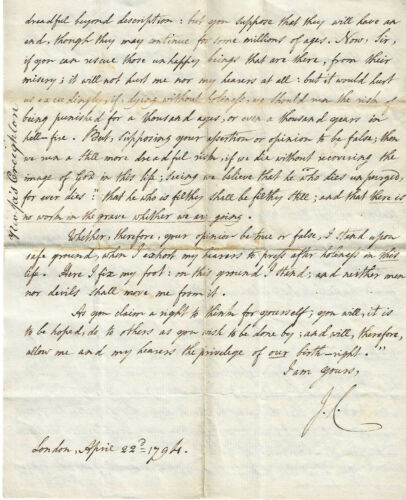 dreadful beyond description: but you suppose that they will have an
end, though they may continue for some millions of ages. Now, Sir,
if you can rescue those unhappy beings that are there, from their
misery; it will not hurt me nor my hearers at all: but it would hurt
us exceedingly, if, dying without holiness, we should run the risk of
being punished for a thousand ages, or even a thousand years in
hell-fire. But, supposing your assertion or opinion to be false; then
we run a still more dreadful risk, if we die without recovering the
image of God in this life; seeing we believe that he who dies unpurged,
for ever dies: "that he who is filthy shall be filthy still; and that there is
no work in the grave whither we are going.
Whether, therefore, your opinion be true or false, I stand upon
safe ground, when I exhort my hearers to press after holiness in this
life. Here I fix my foot: on this ground I stand; and neither men
nor devils shall move me from it.
As you claim a right to think for yourself; you will, it is
to be hoped, do to others as you wish to be done by; and will, therefore,
allow me and my hearers the privilege of our birth-right."
I am yours,
J. C.
London, April 22d. 1794.
Creighton